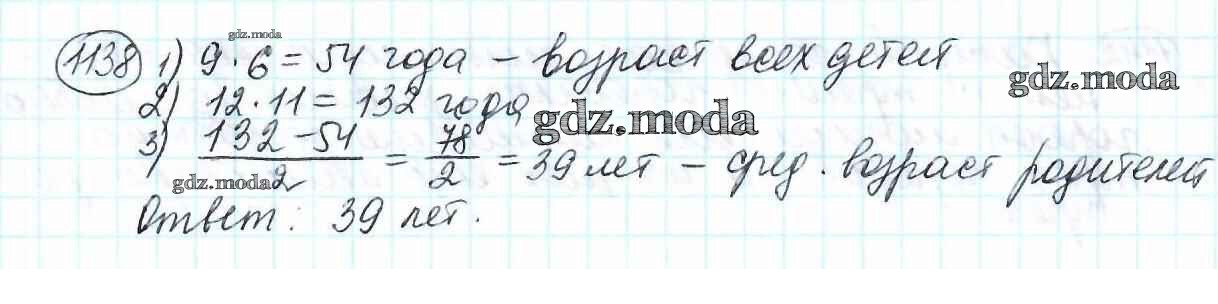 gdz.moda
1138 1) 9 · 6 = 54 года – возраст всех детей
gdz.moda
2) 12 · 11 = 132 года
gdz.moda
3) (132 – 54)/2 = 78/2 = 39 лет – сред. возраст родителей
gdz.moda
Ответ: 39 лет.
gdz.moda